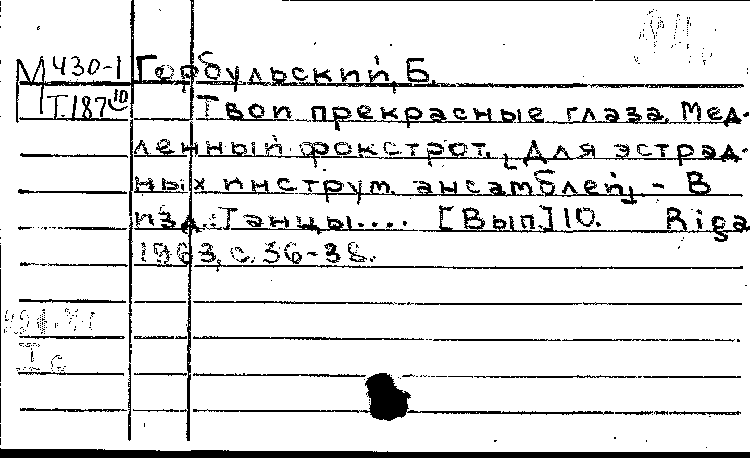 М 430-1 Горбульский, Б.
Т.187 10 Твои прекрасные глаза. Мед-
ленный фокстрот. [Для эстрад-
ных инструм. ансамблей] - В
изд.: Танцы.... [Вып.] 10. Riga
1963, с. 36-38.
I c